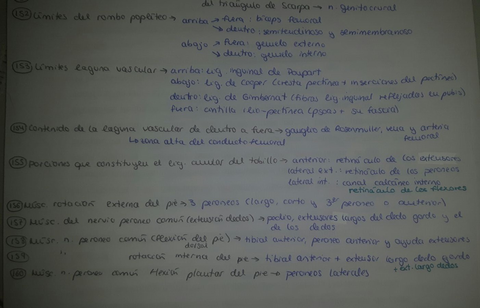 del triángulo de Scarpa → n genitocrural
152 Límites del rombo poplíteo → arriba → fuera: bíceps femoral
→ dentro: semitendinoso y semimembranoso
abajo → fuera: gemelo externo
→ dentro: gemelo interno
153 Límites laguna vascular → arriba: lig inguinal de Poupart
abajo: lig de Cooper (cresta pectínea + inserciones del pectíneo)
dentro: lig de Gimbernat (fibras lig inguinal reflejadas en pubis)
fuera: cintilla ileo-pectínea (psoas + su fascia)
154 Contenido de la laguna vascular de dentro a fuera → ganglio de Rosenmuller, vena y arteria
femoral
↳ zona alta del conducto femoral
155 porciones que constituyen el lig anular del tobillo → anterior: retináculo de los extensores
lateral ext: retináculo de los peroneos
lateral int: canal calcáneo interno
retináculo de los flexores
156 Músc. rotación externa del pie → 3 peroneos (largo, corto y 3er peroneo o anterior)
157 Músc. del nervio peroneo común (extensión dedos) → pedio, extensores largos del dedo gordo y el
de los dedos
158 Músc. n. peroneo común (flexión del pie) → tibial anterior, peroneo anterior y ayuda extensores
dorsal
159 " rotación interna del pie → tibial anterior + extensor largo dedo gordo
+ ext. largo dedos
160 Músc n. peroneo común flexión plantar del pie → peroneos laterales